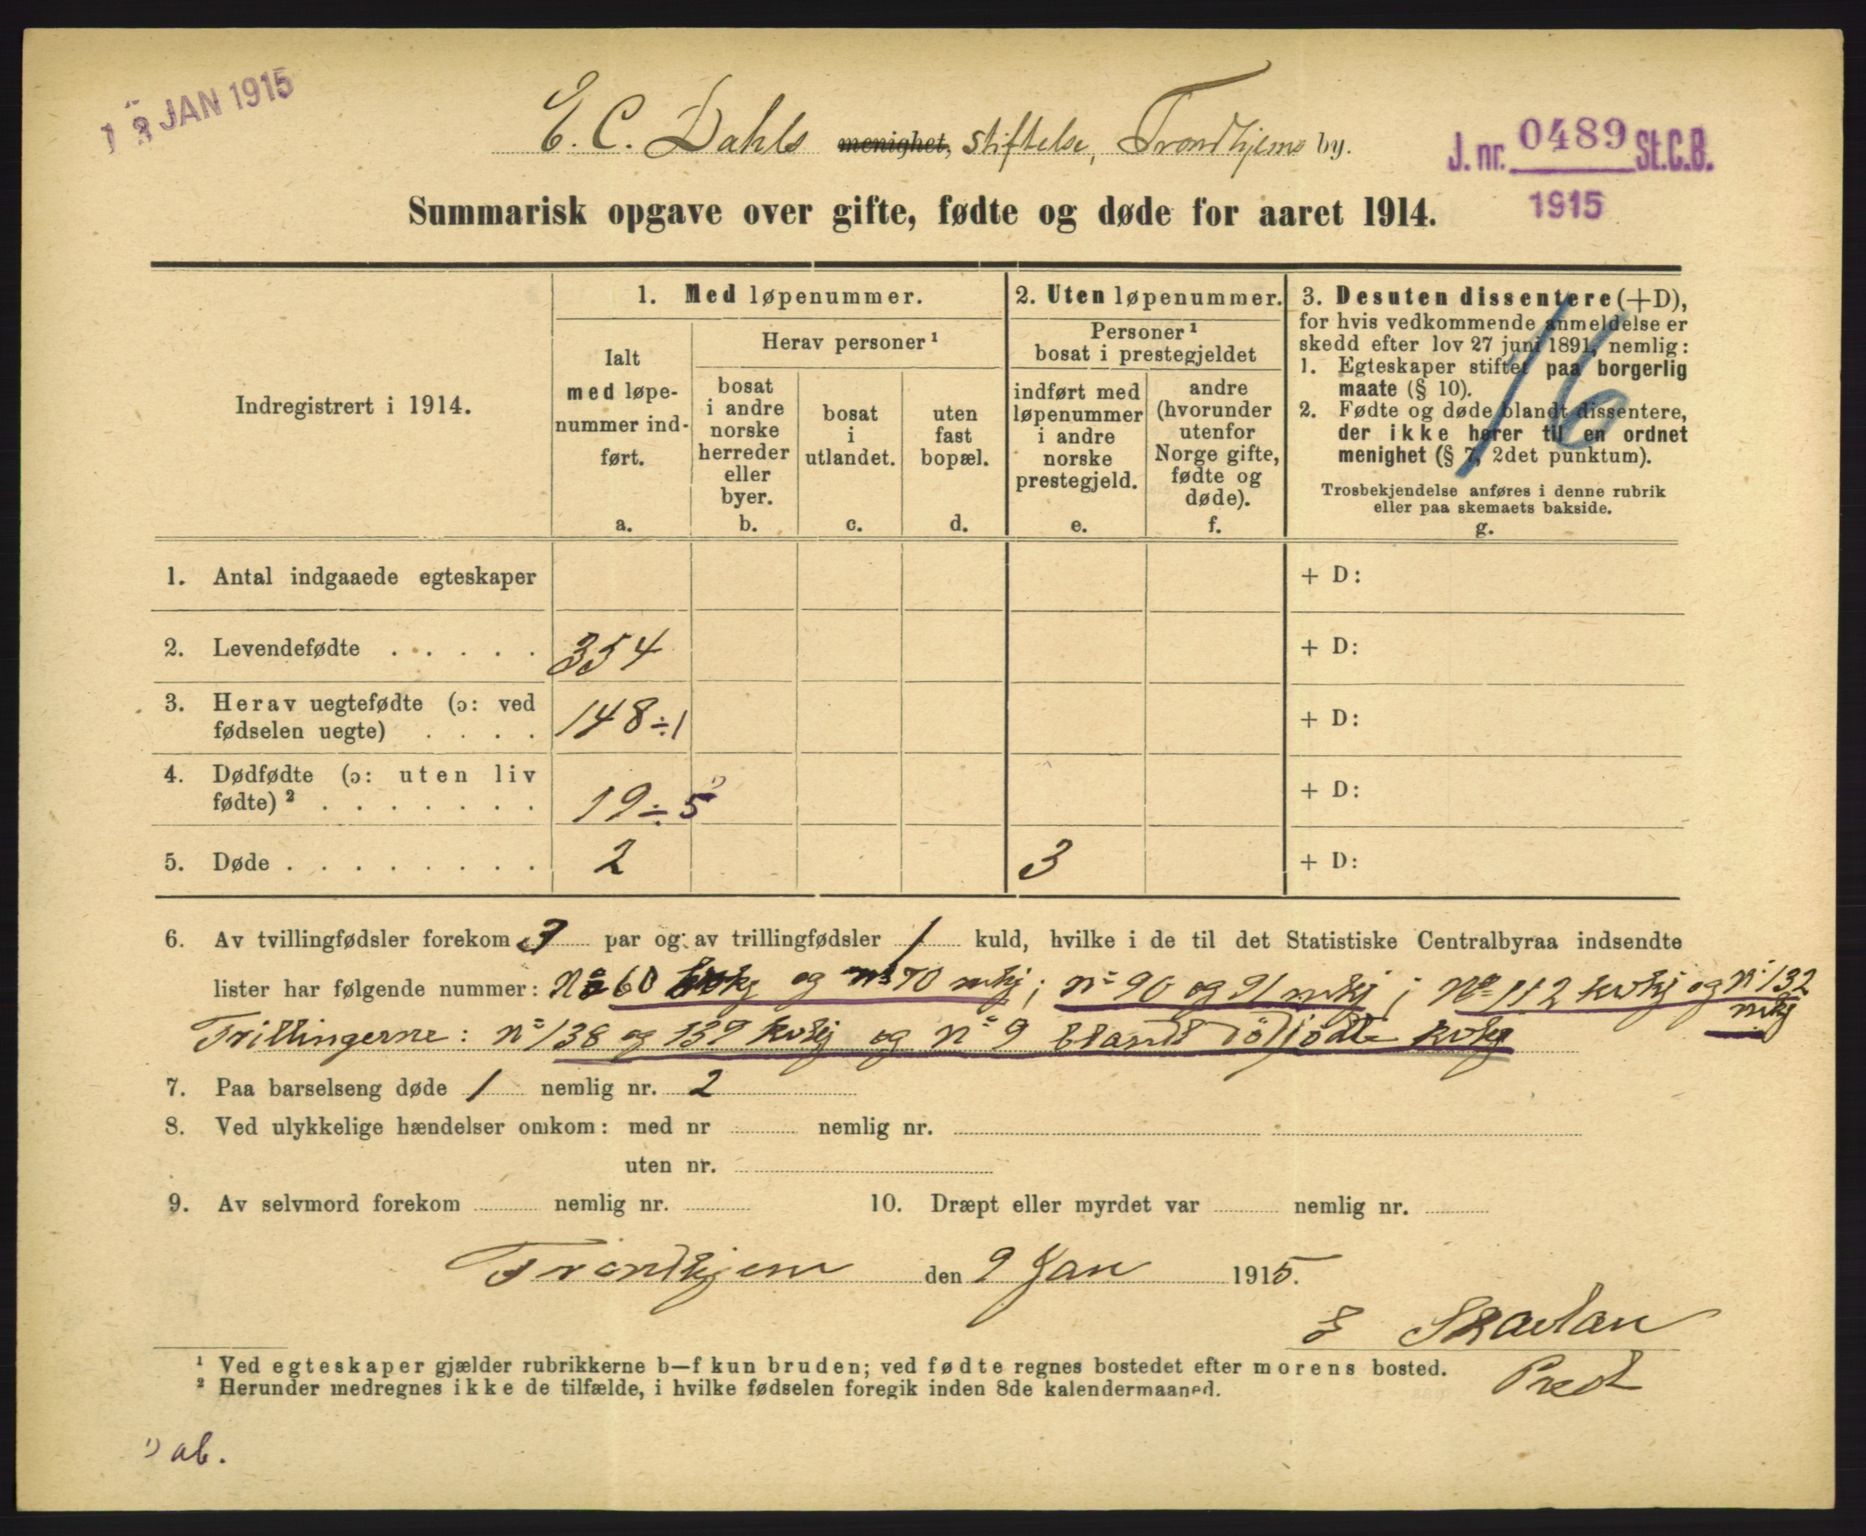 JAN 1915
E. C. Dahls menighet, Stiftelse, Trondhjems by.
J. nr. 0489 St.C.B.
1915
Summarisk opgave over gifte, fødte og døde for aaret 1914.
Indregistrert i 1914.
1. Med løpenummer.
Ialt
med løpe-
nummer ind-
ført.
a.
Herav personer ¹
bosat
i andre
norske
herreder
eller
byer.
b.
bosat
i
utlandet.
c.
uten
fast
bopæl.
d.
2. Uten løpenummer.
Personer ¹
bosat i prestegjeldet
indført med
løpenummer
i andre
norske
prestegjeld.
e.
andre
(hvorunder
utenfor
Norge gifte,
fødte og
døde).
f.
3. Desuten dissentere (+D),
for hvis vedkommende anmeldelse er
skedd efter lov 27 juni 1891, nemlig:
1. Egteskaper stiftet paa borgerlig
maate (§ 10).
2. Fødte og døde blandt dissentere,
der ikke hører til en ordnet
menighet (§ 7, 2det punktum).
Trosbekjendelse anføres i denne rubrik
eller paa skemaets bakside.
g.
16
1. Antal indgaaede egteskaper + D:
2. Levendefødte . . . . . 354 + D:
3. Herav uegtefødte (ɔ: ved
fødselen uegte) . . . . 148 ÷ 1 + D:
4. Dødfødte (ɔ: uten liv
fødte) ² . . . . . . . 19 ÷ 5 ¹⁾ + D:
5. Døde . . . . . . . . 2 3 + D:
6. Av tvillingfødsler forekom 3 par og av trillingfødsler 1 kuld, hvilke i de til det Statistiske Centralbyraa indsendte
lister har følgende nummer: No 60 og no 70 mkj; no 90 og 91 mkj; No 112 kvkj og no 132
mkj
Trillingerne: no 138 og 139 kvkj og no 9 blandt dödfödte kvkj
7. Paa barselseng døde 1 nemlig nr. 2
8. Ved ulykkelige hændelser omkom: med nr nemlig nr.
uten nr.
9. Av selvmord forekom nemlig nr. 10. Dræpt eller myrdet var nemlig nr.
Trondhjem den 9 Jan 1915.
E Skavlan
Prest
¹ Ved egteskaper gjælder rubrikkerne b—f kun bruden; ved fødte regnes bostedet efter morens bosted.
² Herunder medregnes ikke de tilfælde, i hvilke fødselen foregik inden 8de kalendermaaned.
¹⁾ ab.